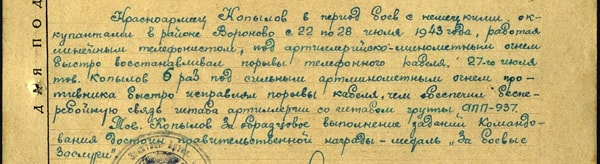 Красноармеец Копылов в период боев с немецкими ок-
купантами в районе Вороново с 22 по 28 июля 1943 года, работая
линейным телефонистом, под артиллерийско-минометным огнем
быстро восстанавливал порывы телефонного кабеля. 27-го июля
тов. Копылов 6 раз под сильным артминометным огнем про-
тивника быстро исправлял порывы кабеля, чем обеспечил беспе-
ребойную связь штаба артиллерии со штабом группы АПП-937.
Тов. Копылов за образцовое выполнение заданий командо-
вания достоин правительственной награды – медаль "За боевые
заслуги"
ДЛЯ ПОД